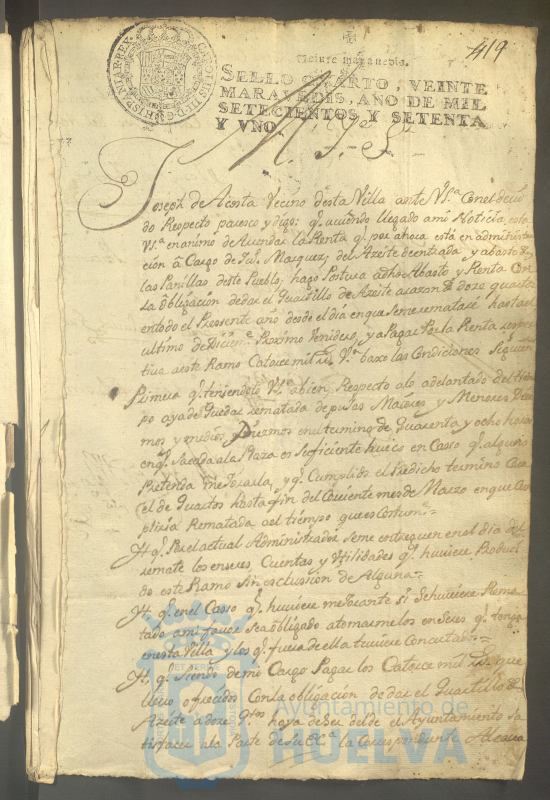 419
CAROLUS III D G HISPANIAR REX
Veinte maravedis.
SELLO QVARTO, VEINTE
MARAVEDIS, AÑO DE MIL
SETECIENTOS Y SETENTA
Y VNO.
Joseph de Acosta Vecino desta Villa ante VSª Con el devi
do Respecto paresco y digo: qe aviendo llegado a mi Noticia esta
VSª en animo de Arrendar la Renta qe por ahora està en administra
ción â Cargo de Marquez del Azeite de entrada y abasto
las Panillas deste Pueblo, hago Postura a dho Abasto y Renta Con
La Obligacion de dar el Quartillo de Azeite a razon de doze quartos
en todo el Presente año desde el dia en que Se me rematase hasta el
ultimo de Diciemre Proximo Venidero, y a Pagar Por la Renta
tiva a este Ramo Catorce mil Vn baxo las Condiciones Siguien
Primera qe teniendolo VSª a bien, Respecto a lo adelantado del tiem
po aya de Quedar rematada Maiores y Menores Diez
mos y medios Diezmos en el termino de Quarenta y ocho horas
en qe Sacada a la Plaza es Suficiente hueco en Casso qe alguno
Pretenda mejorarla, y qe Cumplido el Predicho termino
el de Quartos hasta fin del Corriente mes de Marzo en que Cum
pliria Rematada al tiempo que es Costumre
Yt qe Por el actual Administrador Se me entreguen en el dia del
remate los enseres, Cuentas y Vtilidades qe huviere Produci
do este Ramo Sin exclusion de Alguna
Yt qe en el Casso qe huviere mejorante Si Se huviere Rema
tado a mi favor Sea obligado a tomarme los enSeres qe tenga
en esta Villa y los qe fuera de ella tuviere Concertados
Yt qe Siendo de mi Cargo Pagar los Catorce mil que
llevo ofrecidos Con la obligacion de dar el Quartillo de
Azeite a doze qtos haya de Ser del de el Ayuntamiento Sa
tisfacer a la Parte de Su Exª la Correspondiente
Ayuntamiento de
HUELVA